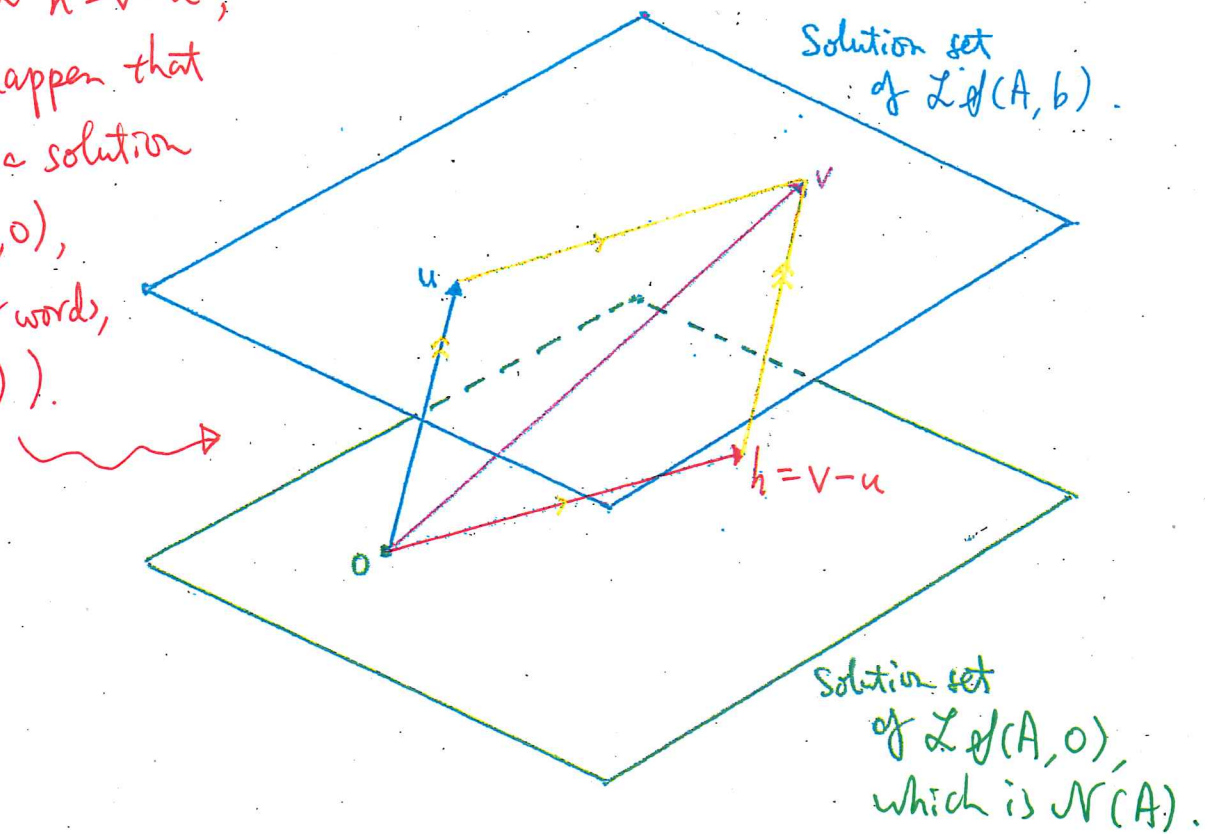 h=v-u,
happen that
a solution
,0),
words,
)).
Solution set
of LS(A,b).
v
u
h=v-u
0
Solution set
of LS(A,0),
which is N(A).